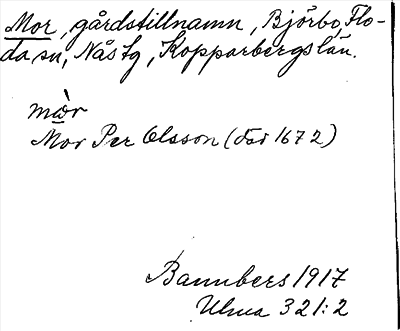 Mor, gårdstillnamn, Björbo, Flo-
da sn, Nås tg, Kopparbergs län.
mòr
Mor Per Olsson (död 1672)
Bannbers 1917
Ulma 321:2